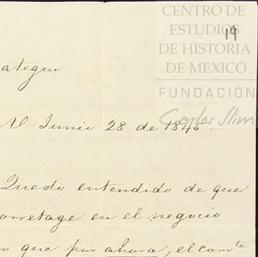 CENTRO DE
ESTUDIOS
DE HISTORIA
DE MEXICO
19
FUNDACIÓN
Carlos Slim
ategui
V Junio 28 de 1846
Quedo entendido de que
orretage en el negocio
o que por ahora, el com^te